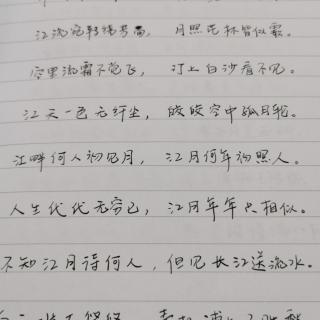 江流宛转绕芳甸，月照花林皆似霰。
空里流霜不觉飞，汀上白沙看不见。
江天一色无纤尘，皎皎空中孤月轮。
江畔何人初见月，江月何年初照人。
人生代代无穷已，江月年年只相似。
不知江月待何人，但见长江送流水。